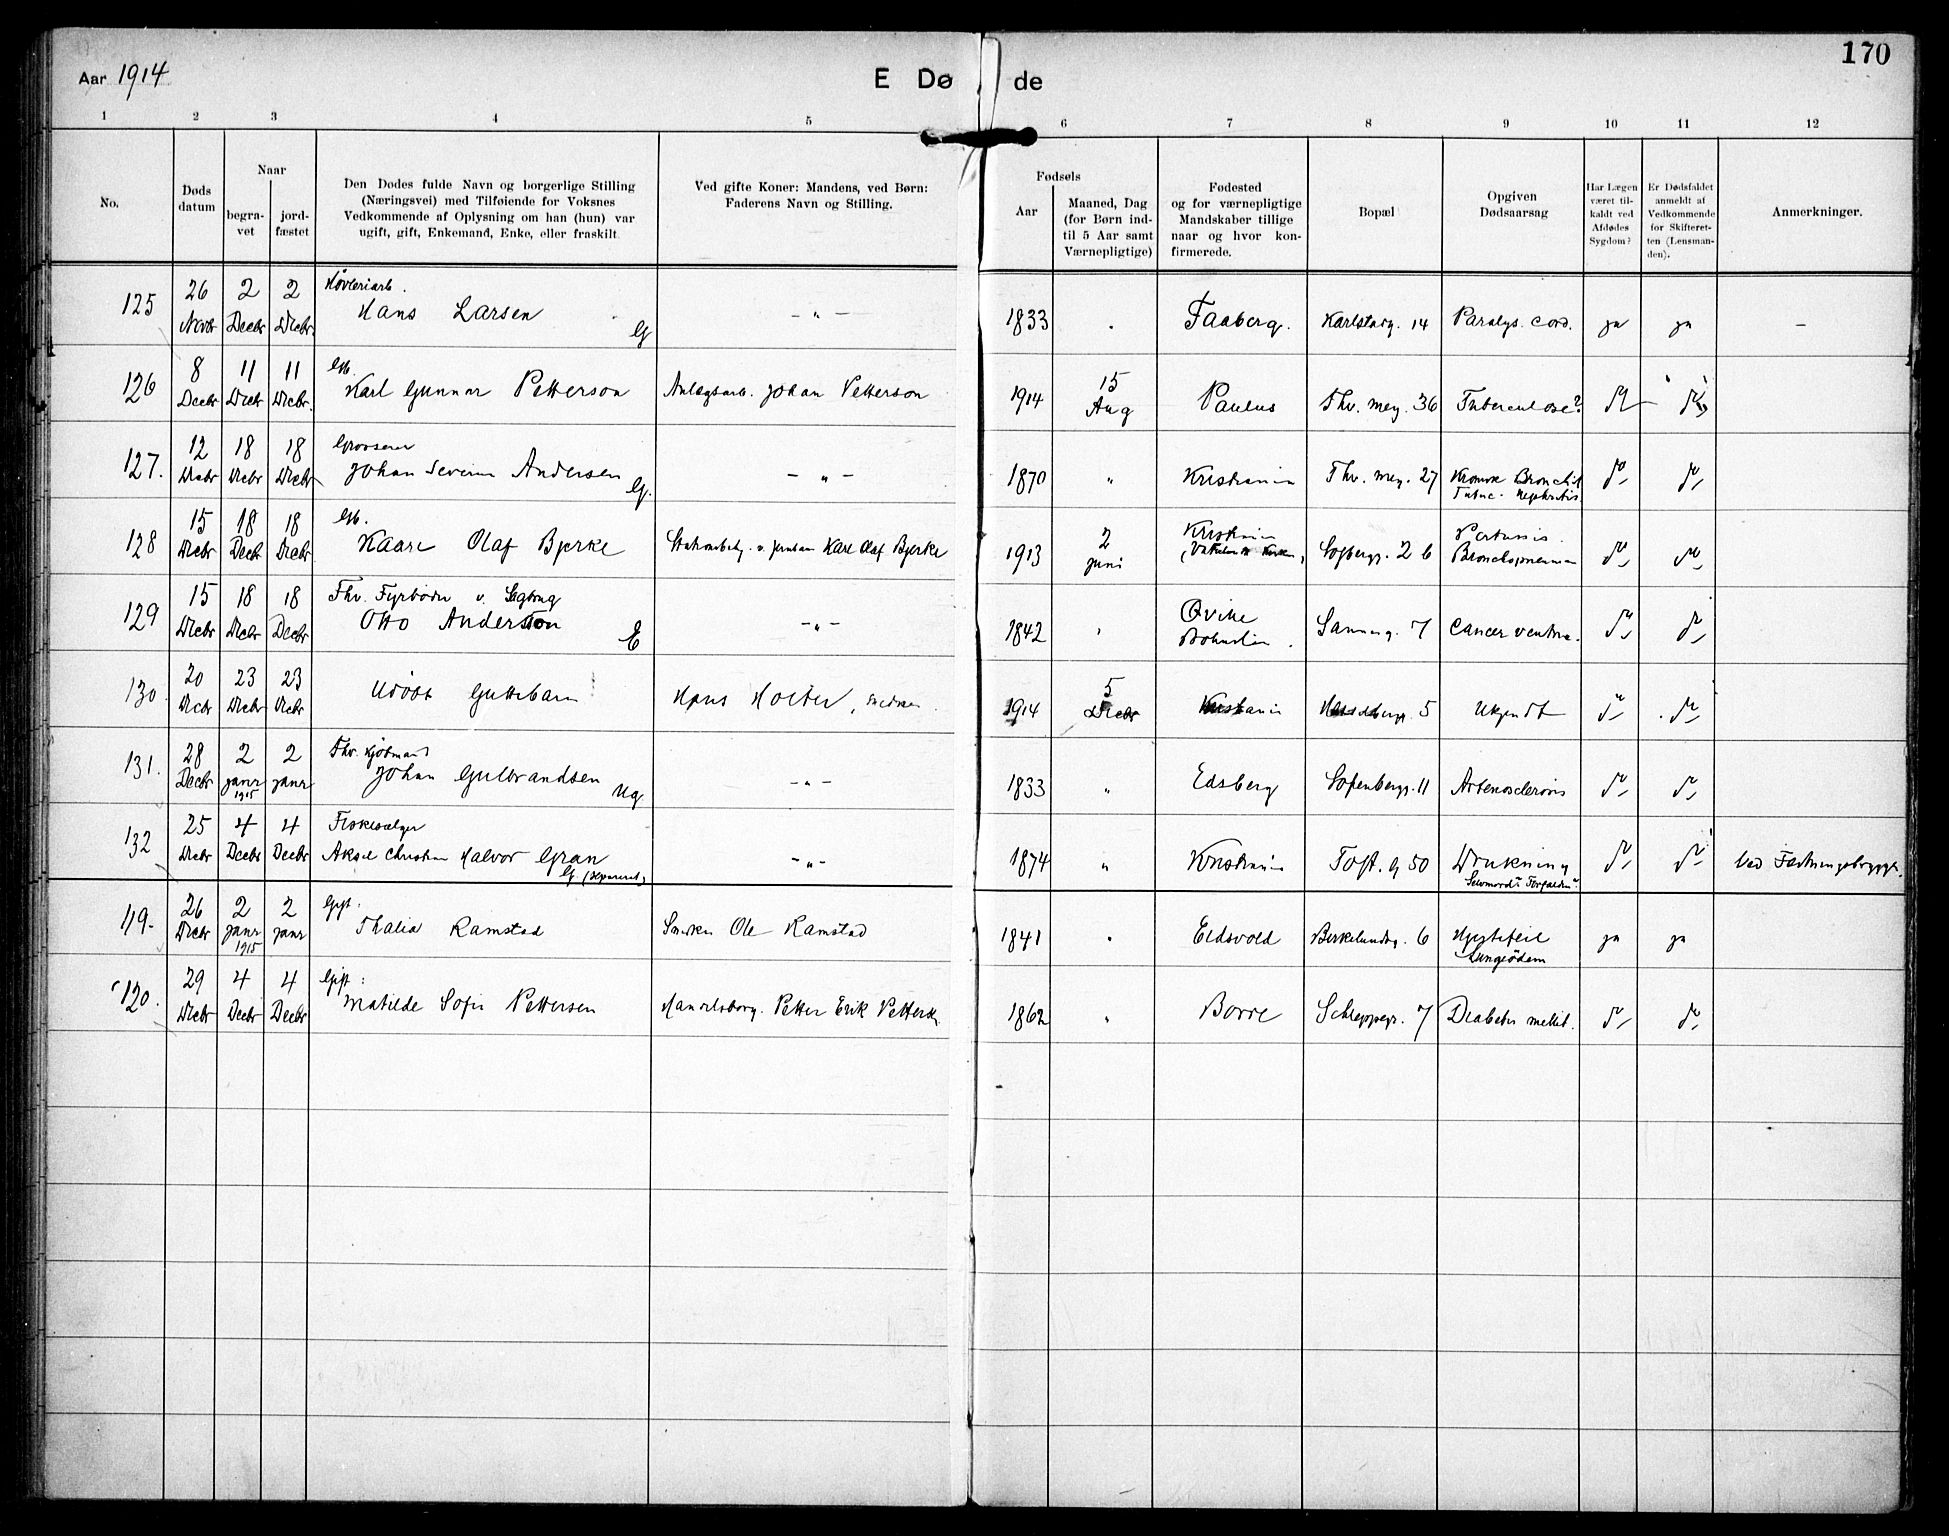 170
Aar 1914
E Dø de
1 2 3 4 5 6 7 8 9 10 11 12
No.
Døds datum
Naar
begra-vet
jord-fæstet
Den Dødes fulde Navn og borgerlige Stilling
(Næringsvei) med Tilføiende for Voksnes
Vedkommende af Oplysning om han (hun) var
ugift, gift, Enkemand, Enke, eller fraskilt.
Ved gifte Koner: Mandens, ved Børn:
Faderens Navn og Stilling.
Fødsels
Aar
Maaned, Dag
(for Børn ind-
til 5 Aar samt
Værnepligtige)
Fødested
og for værnepligtige
Mandskaber tillige
naar og hvor kon-
firmerede.
Bopæl
Opgiven
Dødsaarsag
Har Lægen
været til-
kaldt ved
Afdødes
Sygdom?
Er Dødsfaldet
anmeldt af
Vedkommende
for Skifteret-
ten (Lensman-
den).
Anmerkninger.
125 26 Novbr 2 Decbr 2 Decbr Høvleriarb. Hans Larsen G — " — 1833 Faaberg. Karlstadg. 14 Paralys. cord. ja ja —
126 8 Decbr 11 Decbr 11 Decbr. Gb. Karl Gunnar Petterson Anlægsarb. Johan Petterson 1914 15 Aug Paulus Thv. mey. 36 Tuberculose?
127. 12 Decbr 18 Decbr 18 Decbr Grosserer Johan Severin Andersen G. — " — 1870 " Kristiania Thv. mey. 27 Kronisk Bronchit Tuberc. Nephritis
128 15 Decbr 18 Decbr 18 Decbr Gb. Kaare Olaf Bjerke Karl Olaf Bjerke 1913 2 juni Kristiania Sofbergg. 26 Pertussis. Bronchopneumoni
129 15 Decbr 18 Decbr 18 Decbr Fhv. Fyrbøder v. Sagbrug Otto Anderson E — " — 1842 Qville Bohuslän. Sannerg. 7 Cancer ventric.
130. 20 Decbr 23 Decbr 23 Decbr Udøbt Guttebarn Hans Holter, 1914 5 Decbr Kristiania 5 Ukjendt
131. 28 Decbr 2 janr 1915 2 janr Fhv. Kjøbmand Johan Gulbrandsen Ug — " — 1833 " Edsberg Sofienbergg. 11 Arteriosclerosis
132 25 Decbr 4 Decbr 4 Decbr Fiskesælger Aksel Christian Halvor Gran G. (separeret) — " — 1874 " Kristiania Toft. g 50 Drukning Selvmord i Ved Fæstningsbrygge.
119. 26 Decbr 2 janr 1915 2 janr Gift. Thalia Ramstad Snedker Ole Ramstad 1841 " Eidsvold Birkelundg. 6 Hjertefeil Lungeödem ja ja
120. 29 Decbr 4 Decbr 4 Decbr Gift: Matilde Sofie Pettersen Petter Erik Pettersen 1862 " Borre Schleppegr. 7 Diabetes mellit.